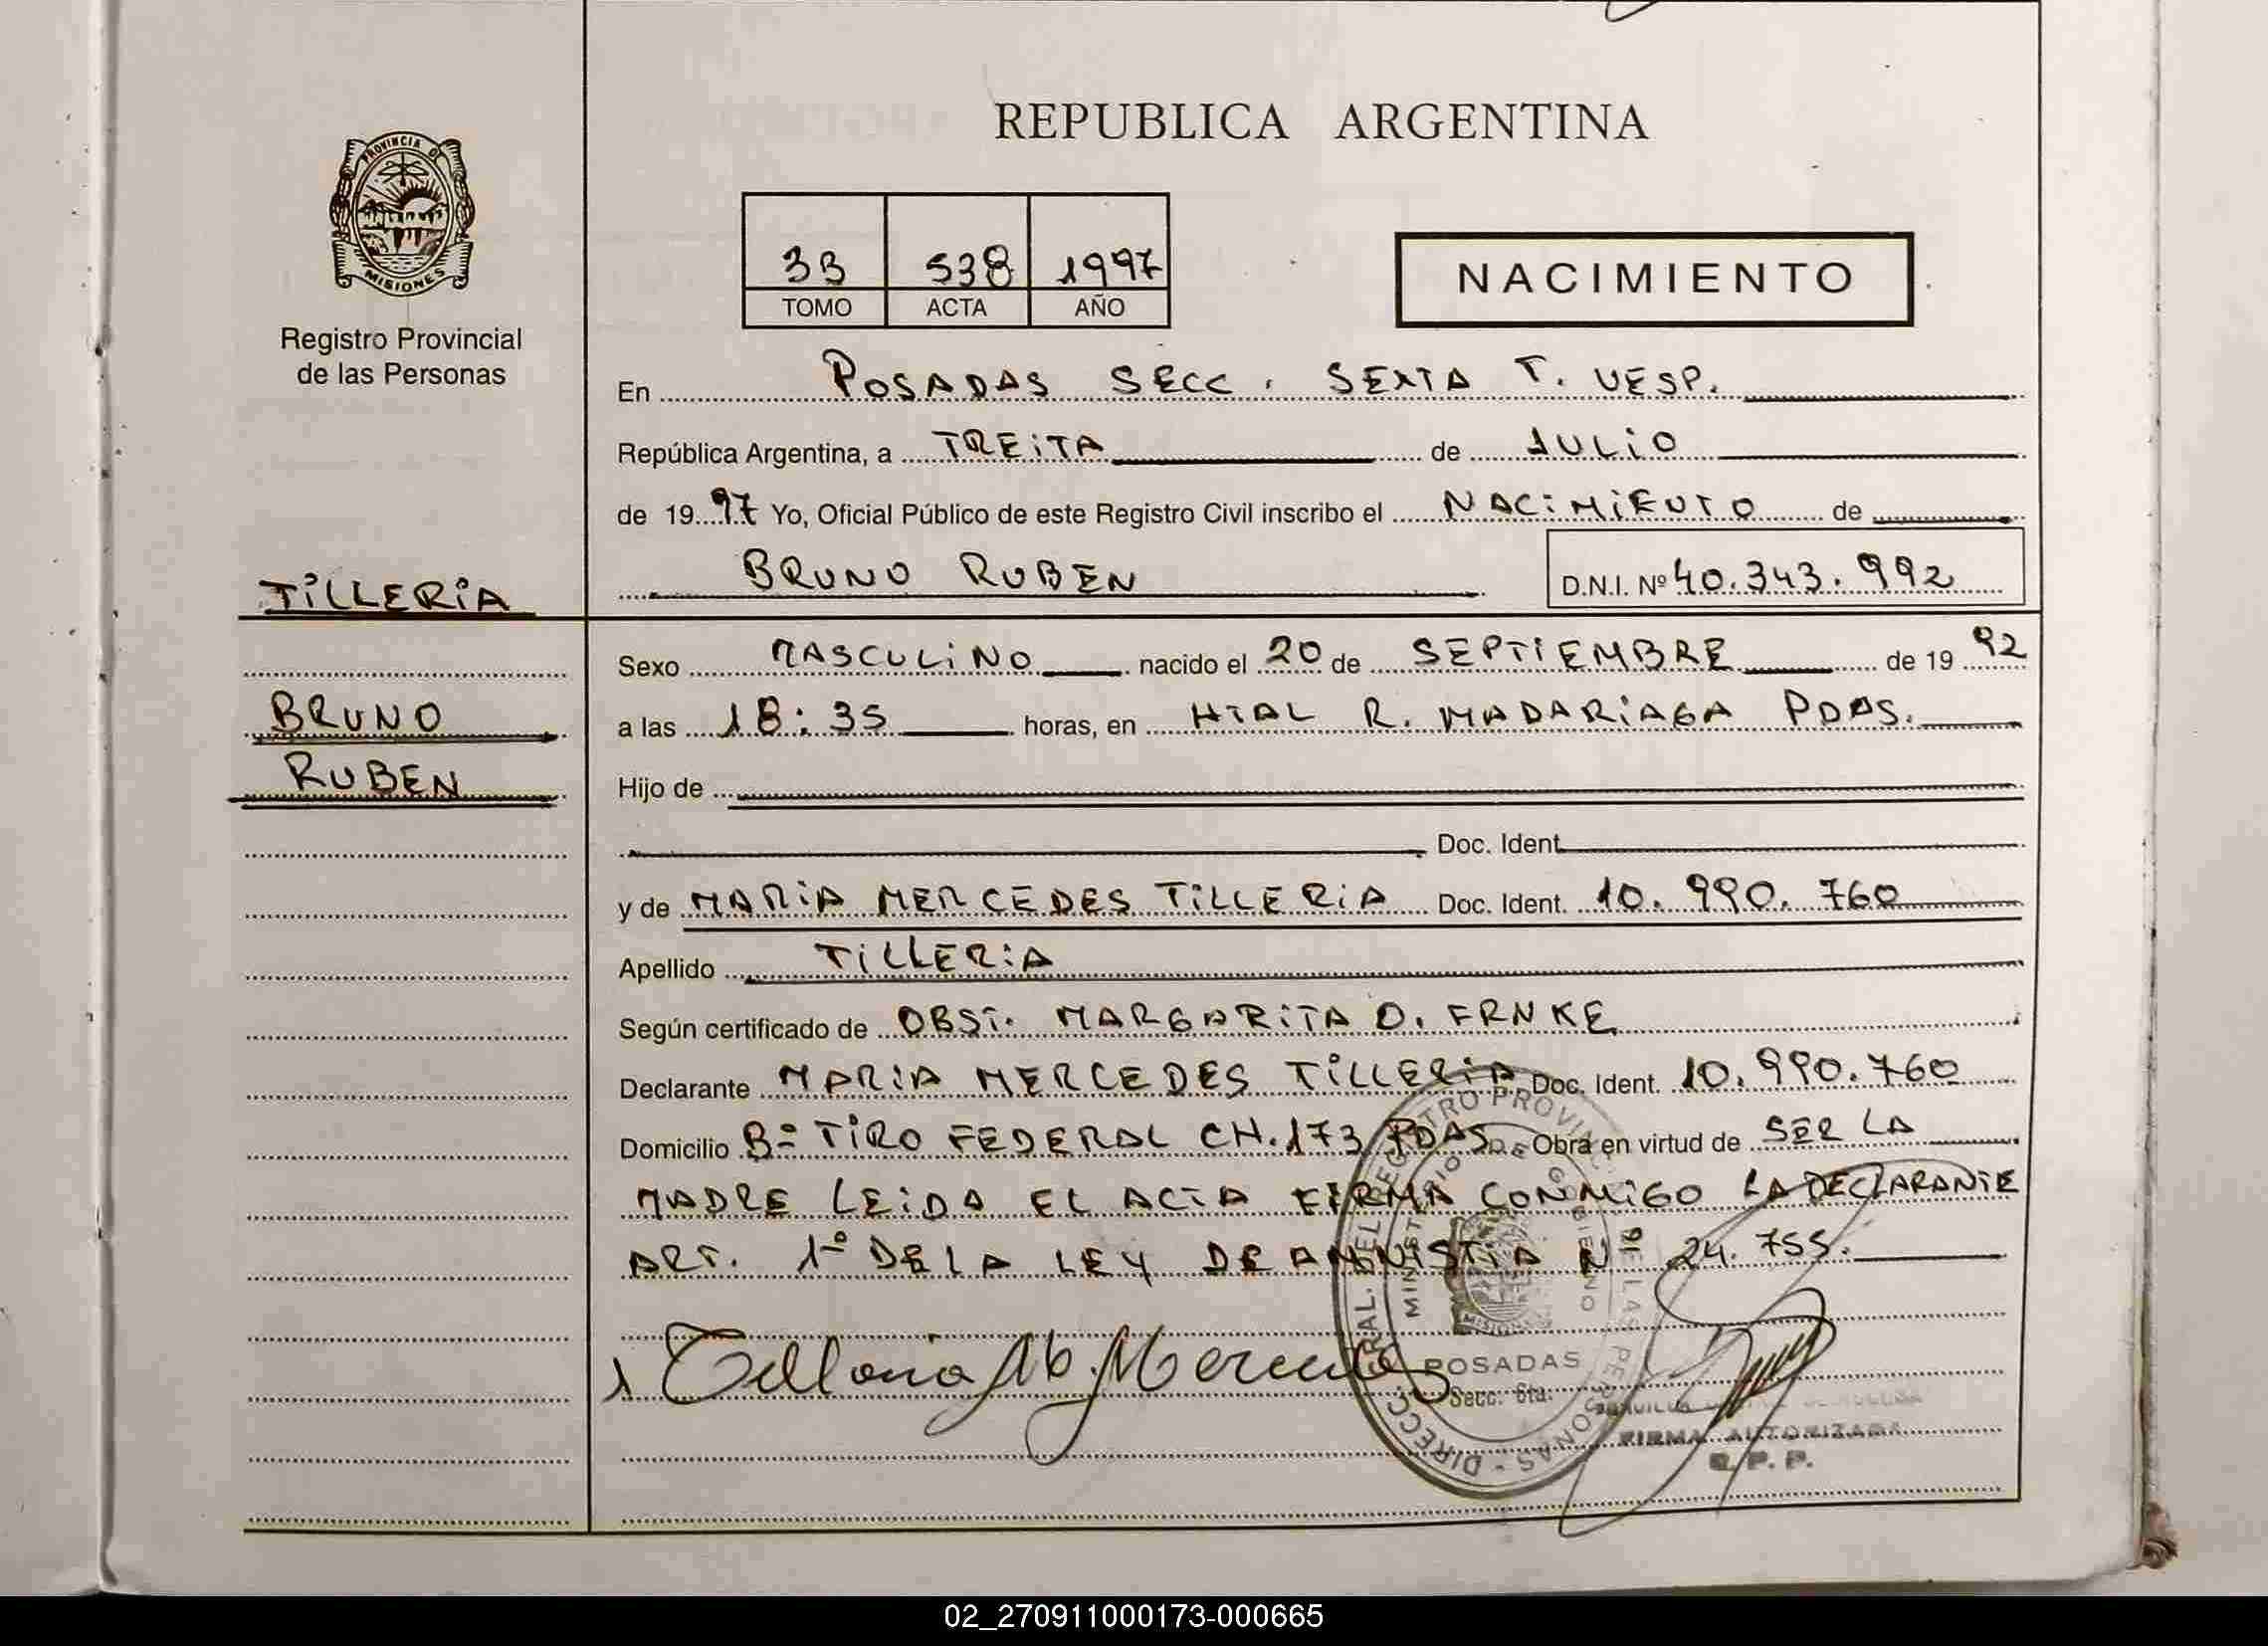 REPUBLICA ARGENTINA
PROVINCIA DE
MISIONES
Registro Provincial
de las Personas
33 538 1997
TOMO ACTA AÑO
NACIMIENTO
En POSADAS SECC. SEXTA T. VESP.
República Argentina, a TREiTA de JULiO
de 1997 Yo, Oficial Público de este Registro Civil inscribo el NACiMiENTO de
BRUNO RUBEN D.N.I. Nº 40.343.992
TiLLERiA
Sexo MASCULiNO nacido el 20 de SEPTiEMBRE de 1992
BRUNO
a las 18:35 horas, en HTAL R. MADARiAGA PDAS.
RUBEN
Hijo de
Doc. Ident.
y de MARiA MERCEDES TiLLERiA Doc. Ident. 10.990.760
Apellido TiLLERiA
Según certificado de OBST. MARGARiTA D. FRNKE
Declarante MARiA MERCEDES TiLLERiA Doc. Ident. 10.990.760
Domicilio Bº TiRO FEDERAL CH.173 PDAS. Obra en virtud de SER LA
MADRE LEiDA EL ACTA FiRMA CONMiGO LA DECLARANTE
ART. 1º DE LA LEY DE AMNiSTiA Nº 24.755.
Tilleria M. Mercedes
POSADAS
Secc. 6ta.
FIRMA AUTORIZADA
R.P.P.
02_270911000173-000665